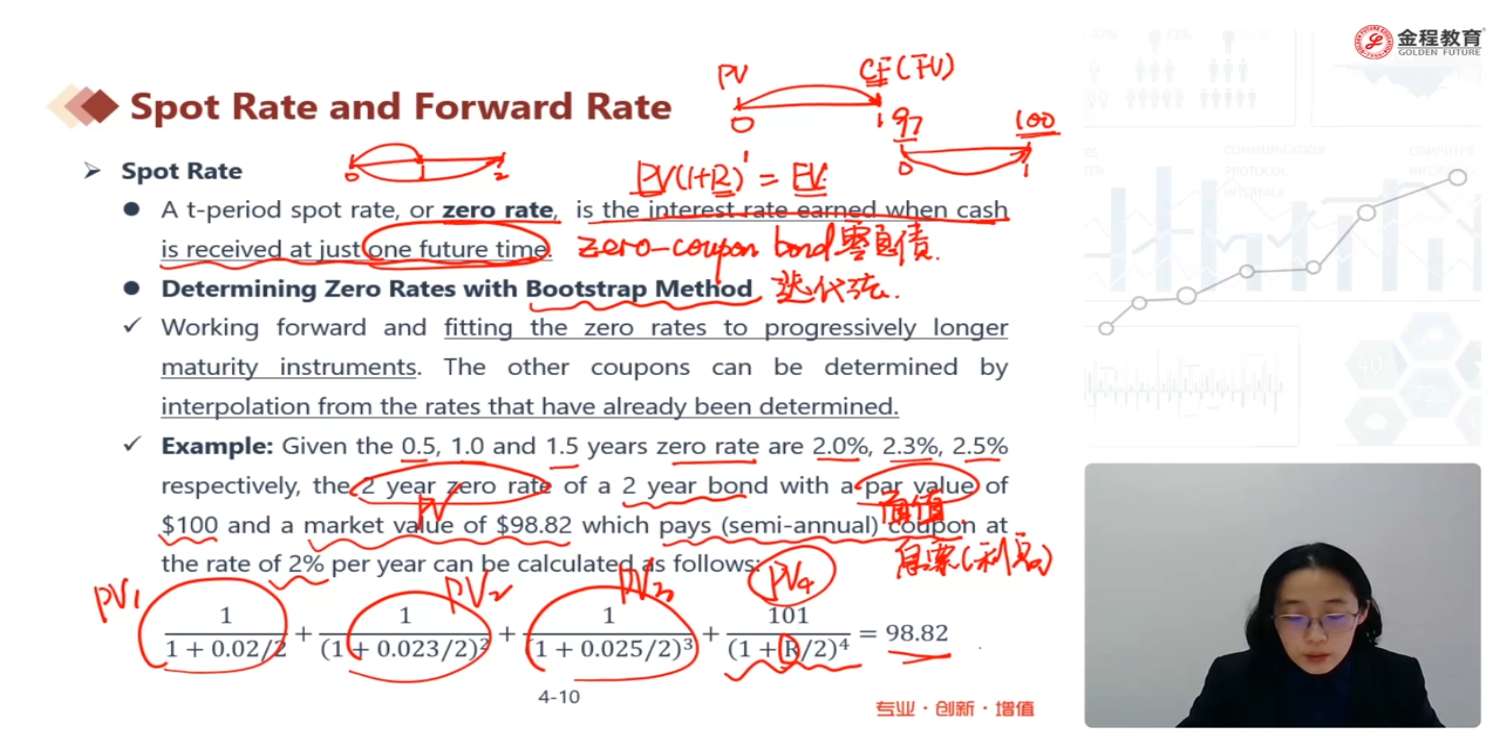 金程教育
GOLDEN FUTURE
PV
CF(FV)
0
1
97
100
0
1
Spot Rate and Forward Rate
0
1
2
PV(1+R)¹ = FV
Spot Rate
A t-period spot rate, or zero rate, is the interest rate earned when cash
is received at just one future time.
zero-coupon bond 零息债.
Determining Zero Rates with Bootstrap Method
迭代法.
Working forward and fitting the zero rates to progressively longer
maturity instruments. The other coupons can be determined by
interpolation from the rates that have already been determined.
Example: Given the 0.5, 1.0 and 1.5 years zero rate are 2.0%, 2.3%, 2.5%
respectively, the 2 year zero rate of a 2 year bond with a par value of
PV
面值
$100 and a market value of $98.82 which pays (semi-annual) coupon at
息票(利息)
the rate of 2% per year can be calculated as follows:
PV1
PV2
PV3
PV4
1/(1 + 0.02/2) + 1/(1 + 0.023/2)² + 1/(1 + 0.025/2)³ + 101/(1 + R/2)⁴ = 98.82
4-10
专业·创新·增值